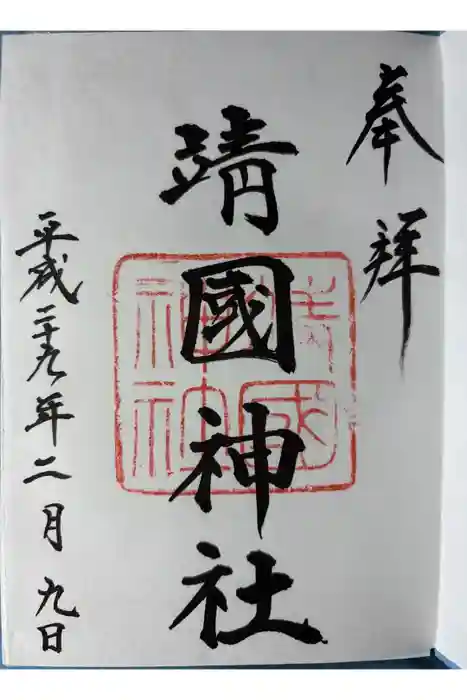 奉拜
靖國神社
平成二十九年二月九日
靖國
神社